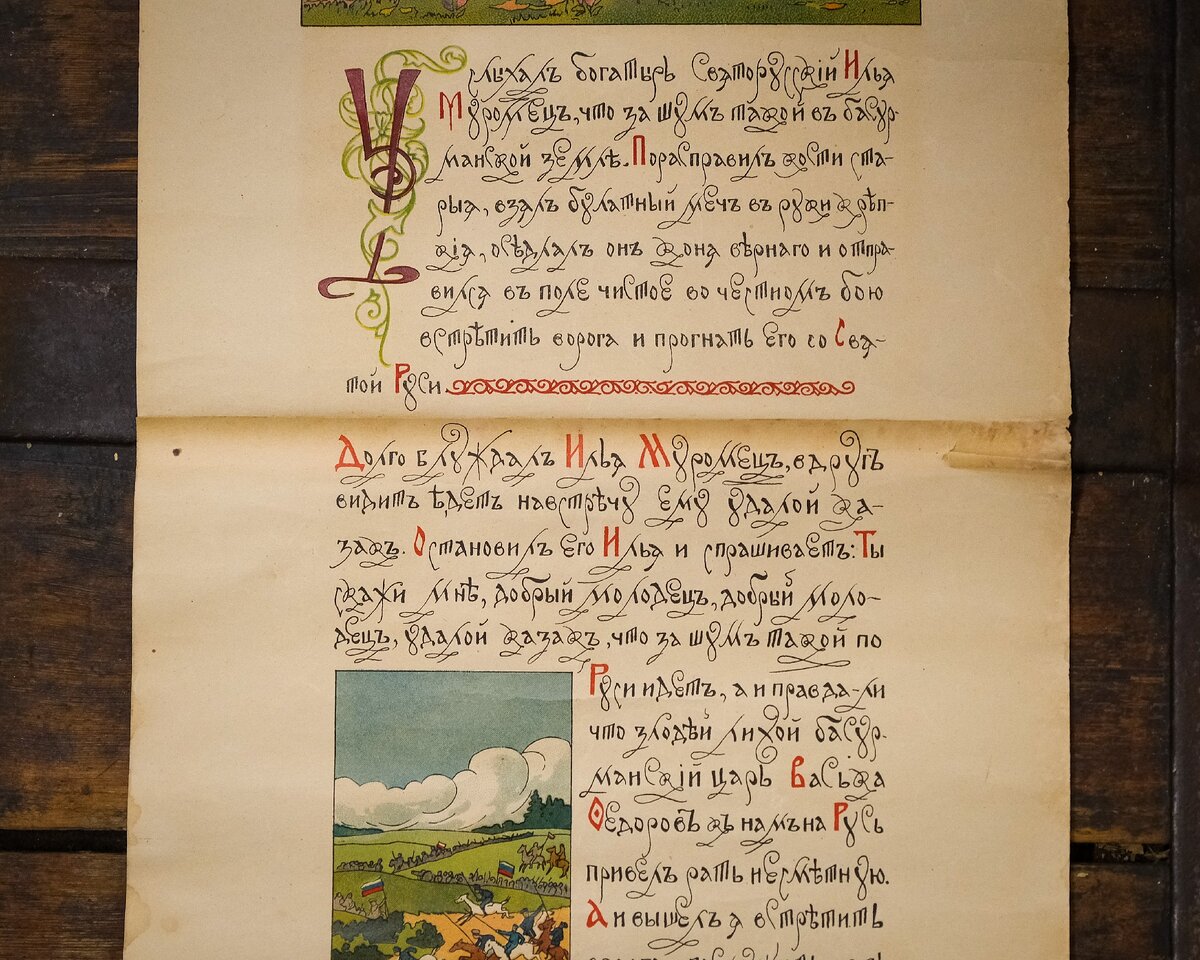 Услыхалъ богатырь Святорусскій Илья
Муромецъ, что за шумъ такой въ басур-
манской землѣ. Порасправилъ кости ста-
рыя, взялъ булатный мечъ въ руки крѣп-
кія, осѣдлалъ онъ коня вѣрнаго и отпра-
вился въ поле чистое во честномъ бою
встрѣтить ворога и прогнать Его со Свя-
той Руси
Долго блуждалъ Илья Муромецъ, вдругъ
видитъ ѣдетъ навстрѣчу ему удалой ка-
закъ. Остановилъ Его Илья и спрашиваетъ: Ты
скажи мнѣ, добрый молодецъ, добрый моло-
децъ, удалой казакъ, что за шумъ такой по
Руси идетъ, а и правда-ли
что злодѣй лихой басур-
манскій царь Васька
Ѳедоровъ къ намъ на Русь
привелъ рать несмѣтную.
А и вышелъ я встрѣтить